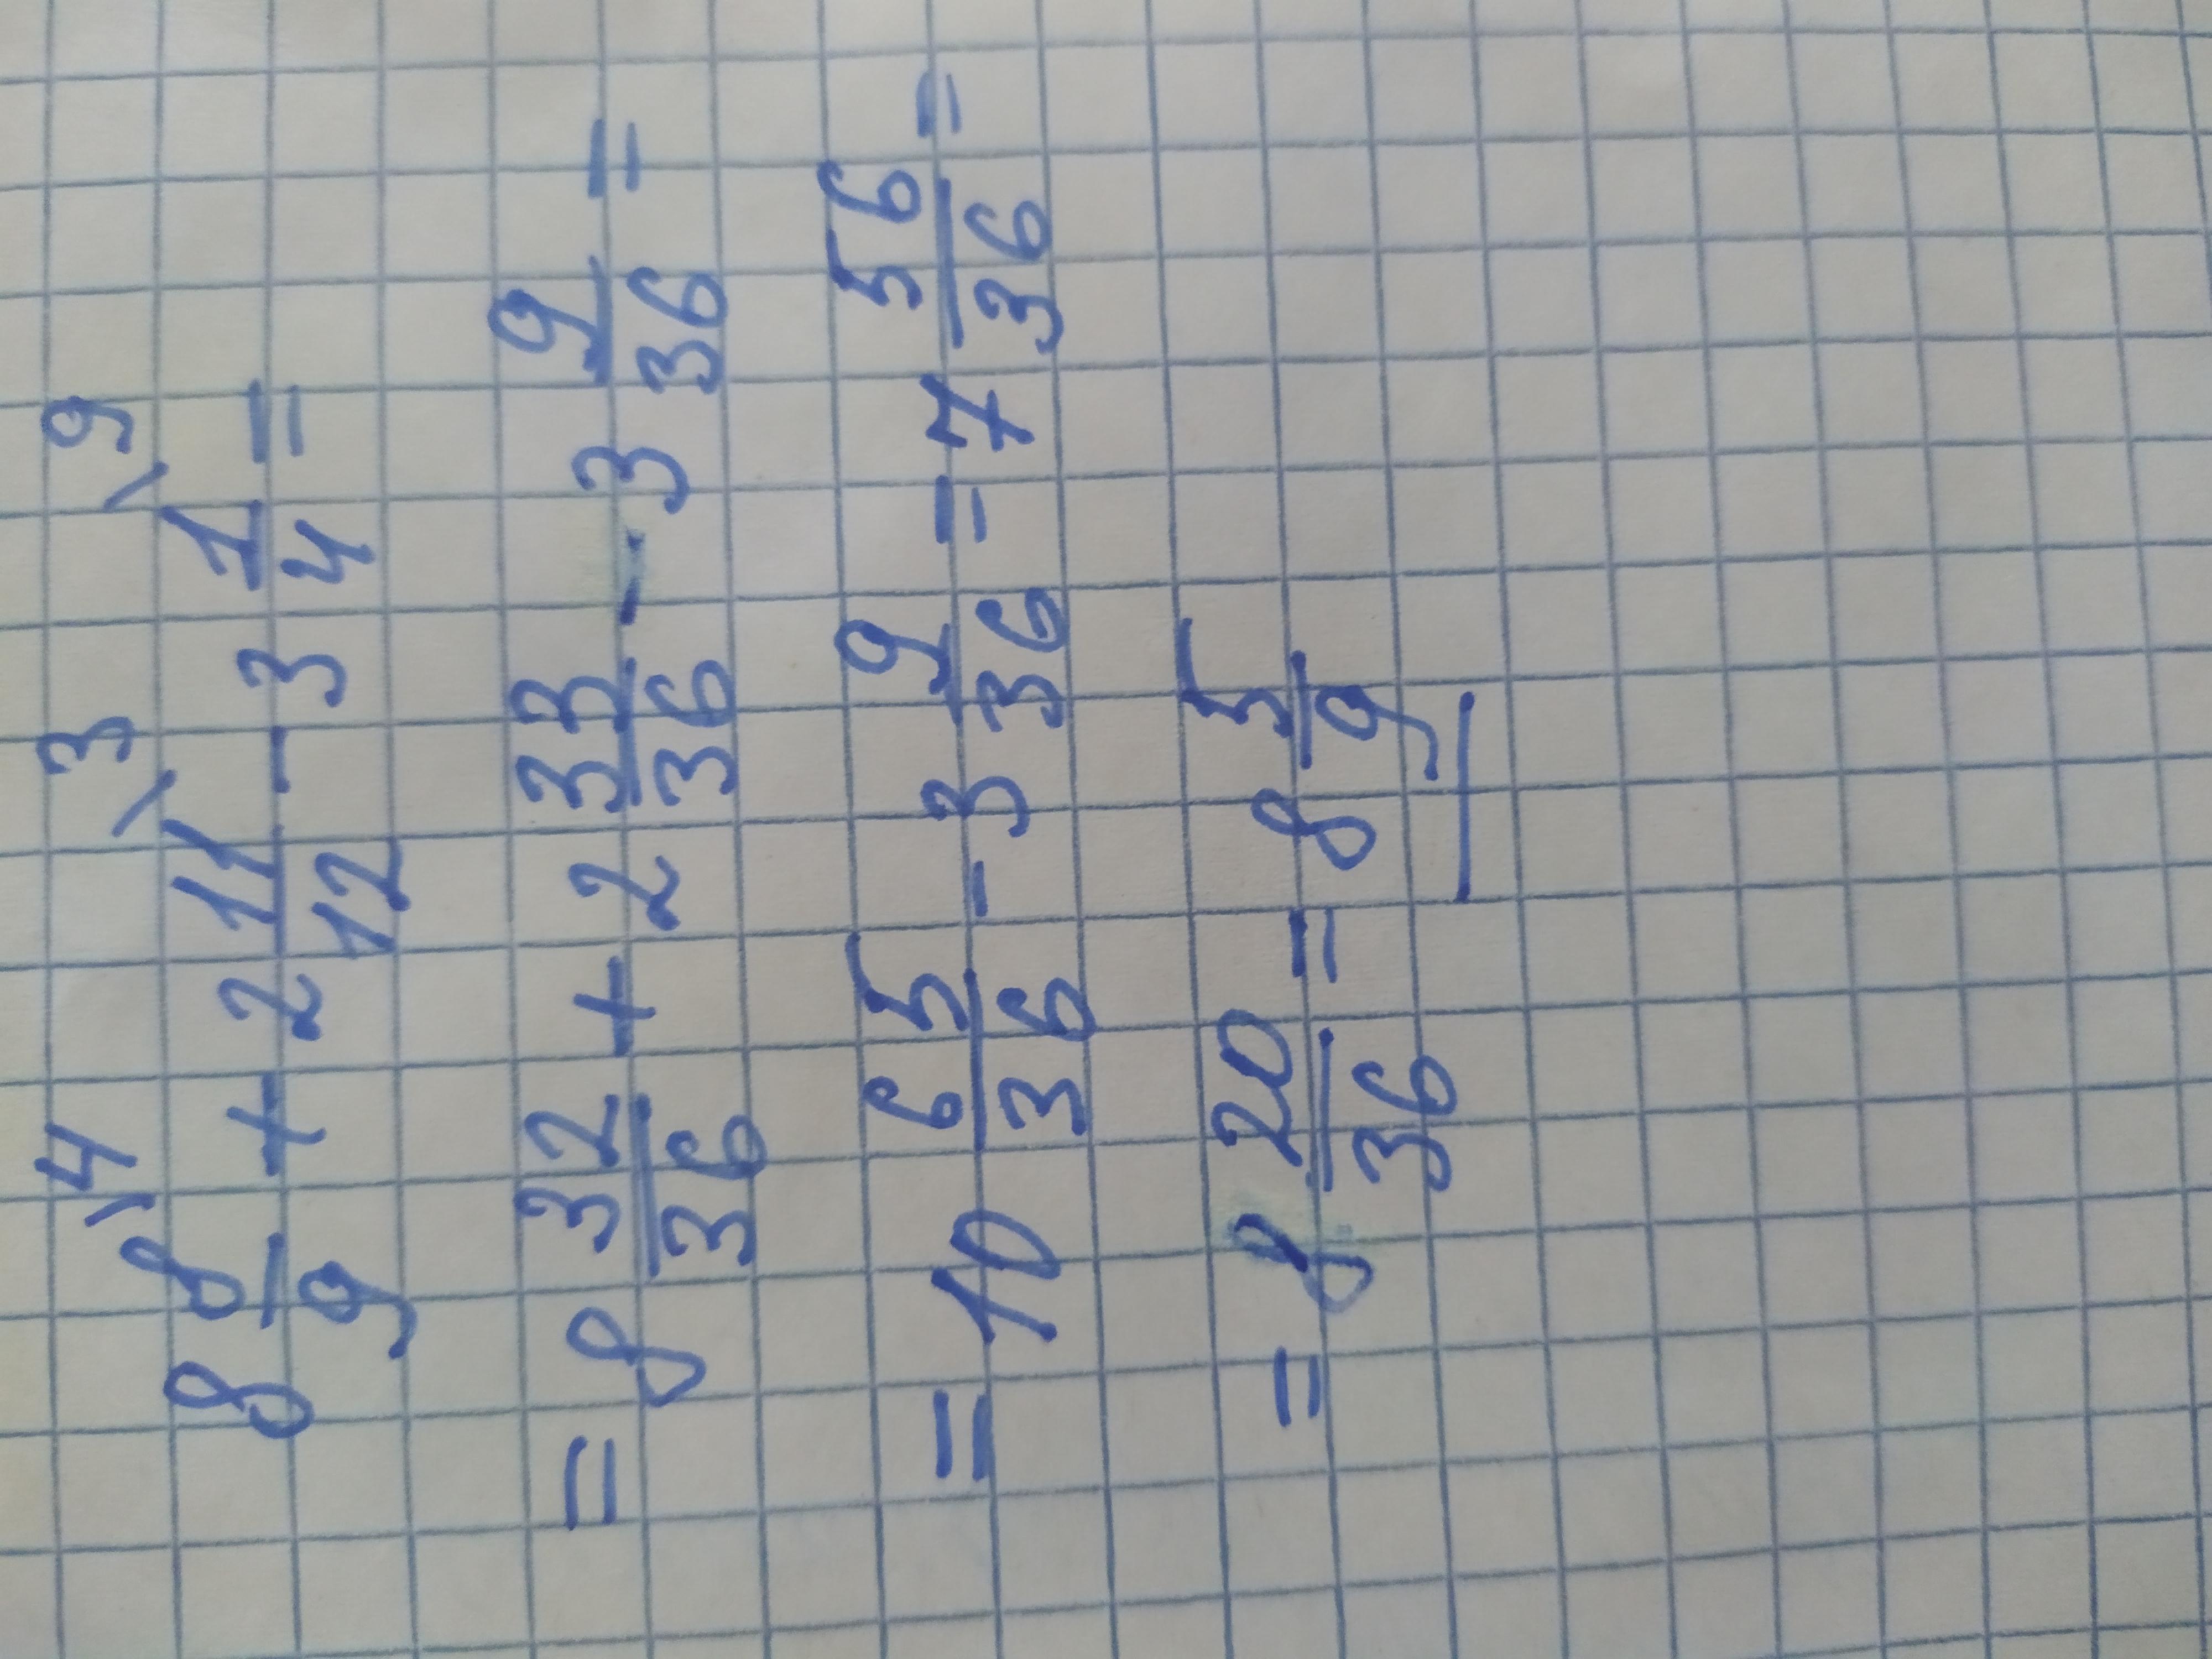 8 8/9 \4 + 2 11/12 \3 - 3 1/4 \9 =
= 8 32/36 + 2 33/36 - 3 9/36 =
= 10 65/36 - 3 9/36 = 7 56/36 =
= 8 20/36 = 8 5/9